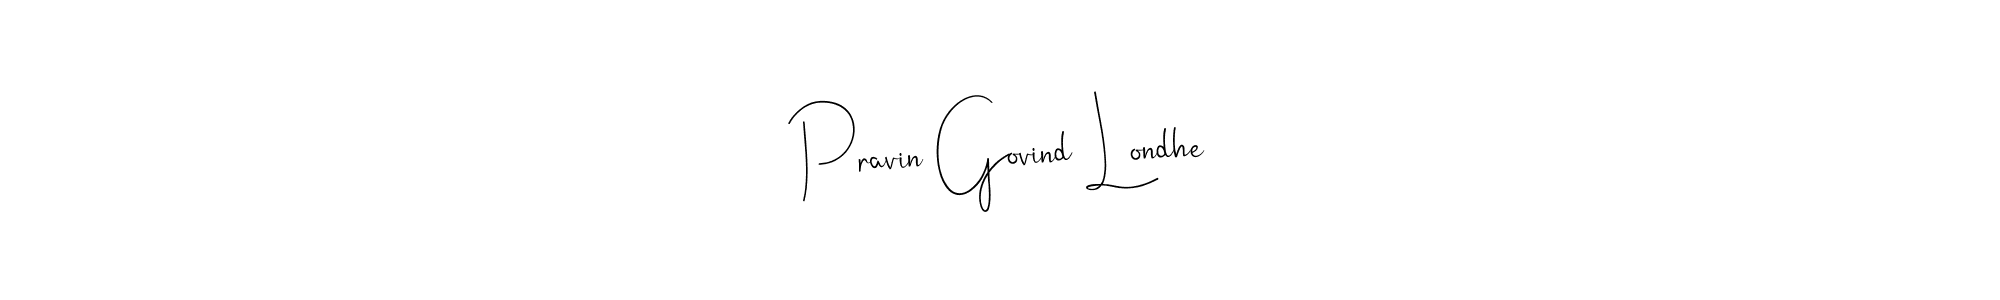 Pravin Govind Londhe